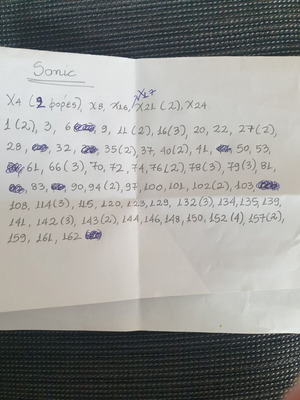 Sonic
X4 (2 φορές), X8, X16, X17, X21 (2), X24
1 (2), 3, 6, 9, 11 (2), 16(3), 20, 22, 27(2),
28, 32, 35(2), 37, 40(2), 41, 50, 53,
61, 66(3), 70, 72, 74, 76(2), 78(3), 79(3), 81,
83, 90, 94(2), 97, 100, 101, 102(2), 103,
108, 114(3), 115, 120, 123, 129, 132(3), 134, 135, 139,
141, 142(3), 143(2), 144, 146, 148, 150, 152(4), 157(2),
159, 161, 162